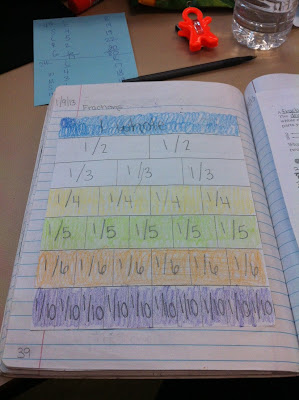 1/9/13 Fractions
1 whole
1/2 1/2
1/3 1/3 1/3
1/4 1/4 1/4 1/4
1/5 1/5 1/5 1/5 1/5
1/6 1/6 1/6 1/6 1/6 1/6
1/10 1/10 1/10 1/10 1/10 1/10 1/10 1/10 1/10 1/10
39